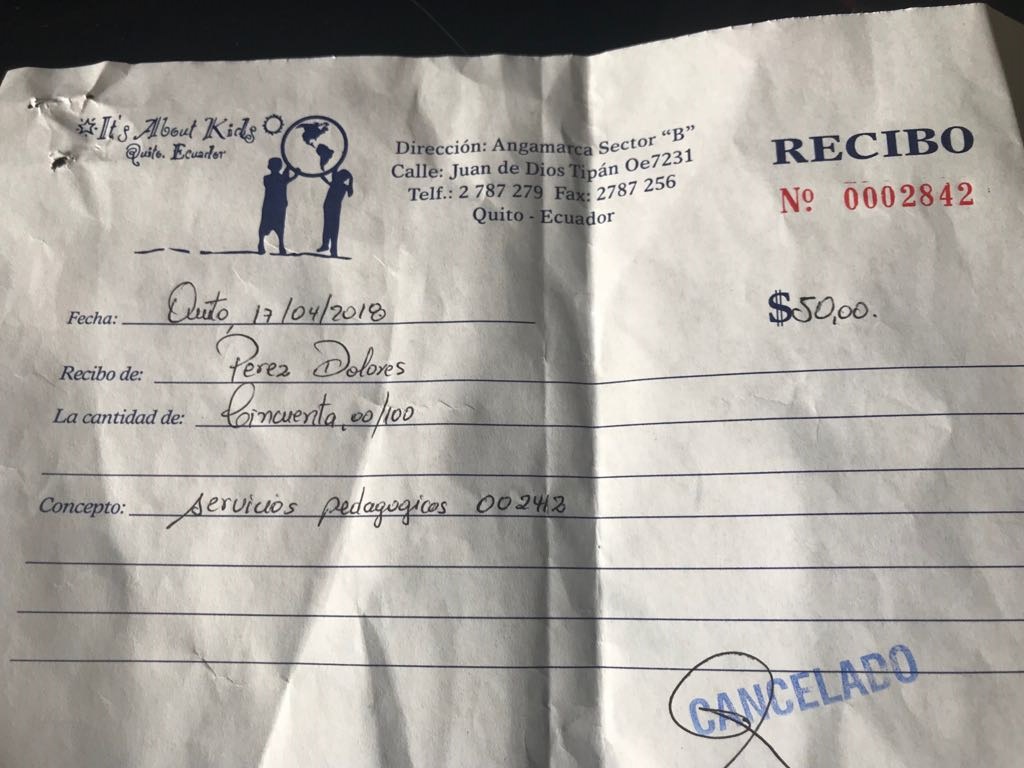 It's About Kids
Quito. Ecuador
Dirección: Angamarca Sector "B"
Calle: Juan de Dios Tipán Oe7231
Telf.: 2 787 279 Fax: 2787 256
Quito - Ecuador
RECIBO
Nº 0002842
Fecha: Quito, 17/04/2018
$50,00.
Recibo de: Pérez Dolores
La cantidad de: Cincuenta, 00/100
Concepto: servicios pedagogicos 002412
CANCELADO